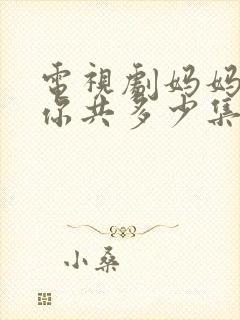 電視劇妈妈
你共多少集
小桑